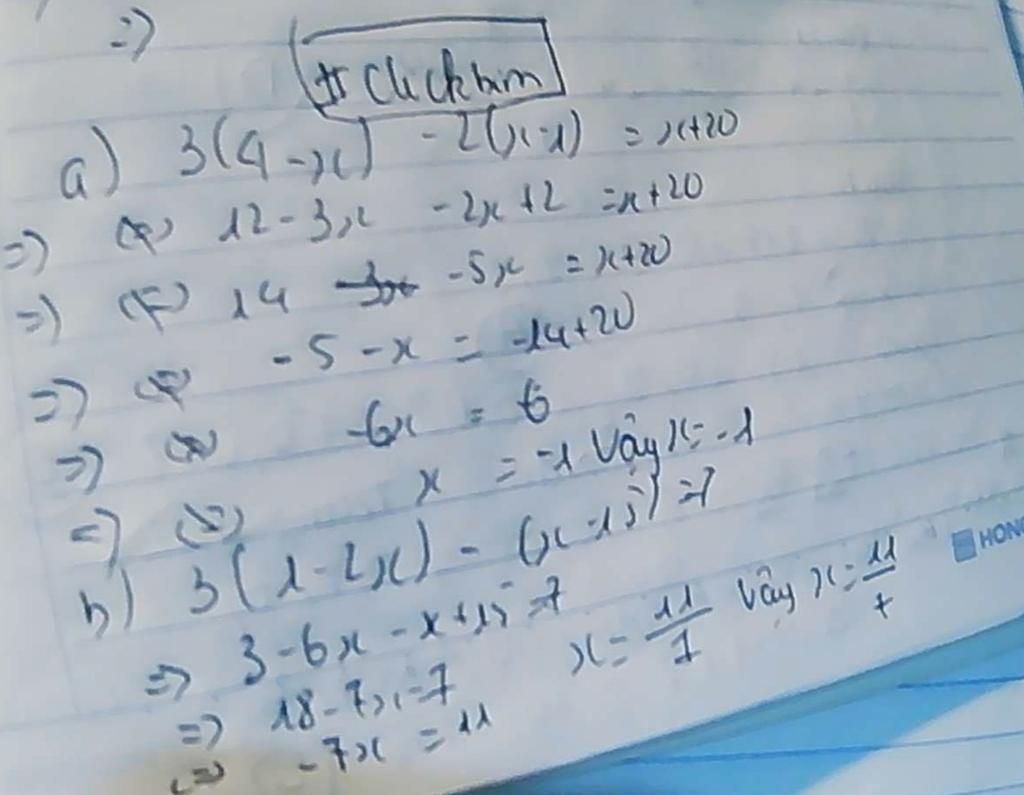 =>)
# Clickbim
a) 3(4-x) -2(x-1) = x+20
=> 12-3x -2x+2 =x+20
=> 14 -5x = x+20
=> -5-x = -14+20
=> -6x = 6
=> x = -1 Vậy x=-1
b) 3(1-2x) - (x-15) =7
=> 3-6x-x+15=7
=> 18-7x=7
<=> -7x = 11
x= 11/7 Vậy x= 11/7
HONG